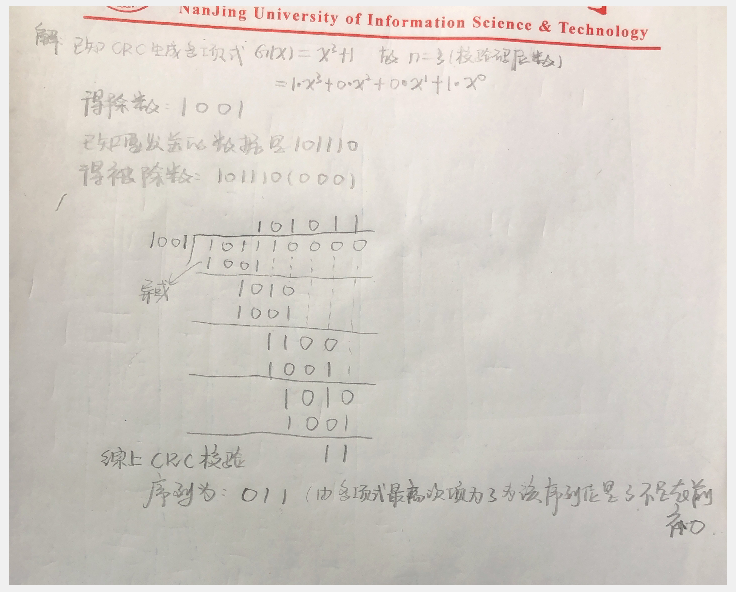 NanJing University of Information Science & Technology
解 已知CRC生成多项式 G(X) = X³+1 故 n=3 (校验码位数)
= 1·X³+0·X²+0·X¹+1·X⁰
得除数: 1001
已知要发送的数据是101110
得被除数: 101110(000)
101011
1001 101110000
1001
异或
1010
1001
1100
1001
1010
1001
11
综上CRC校验
序列为: 011 (由多项式最高次项为3 序列位是3 不足在前
补0